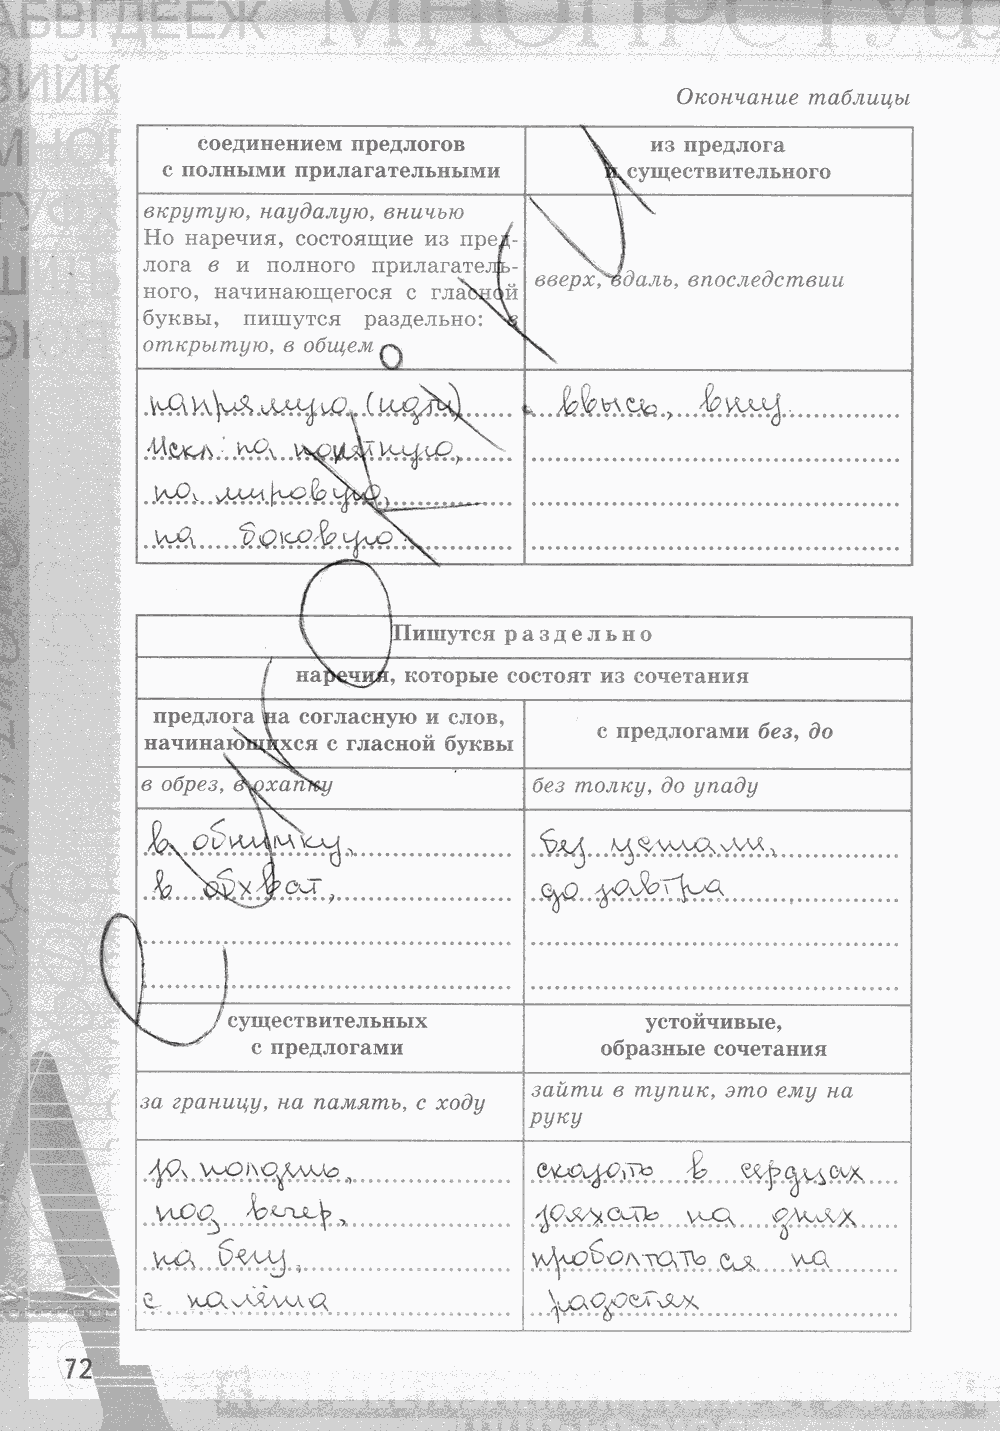 Окончание таблицы
соединением предлогов
с полными прилагательными
из предлога
и существительного
вкрутую, наудалую, вничью
Но наречия, состоящие из пред-
лога в и полного прилагатель-
ного, начинающегося с гласной
буквы, пишутся раздельно: в
открытую, в общем
вверх, вдаль, впоследствии
напрямую (идти)
Искл: на попятную,
на мировую,
на боковую.
ввысь, вниз.
Пишутся раздельно
наречия, которые состоят из сочетания
предлога на согласную и слов,
начинающихся с гласной буквы
с предлогами без, до
в обрез, в охапку
без толку, до упаду
в обнимку,
в обхват,
без устали,
до завтра
существительных
с предлогами
устойчивые,
образные сочетания
за границу, на память, с ходу
зайти в тупик, это ему на
руку
за полдень,
под вечер,
на бегу,
с налёта
сказать в сердцах
заехать на днях
проболтаться на
радостях
72